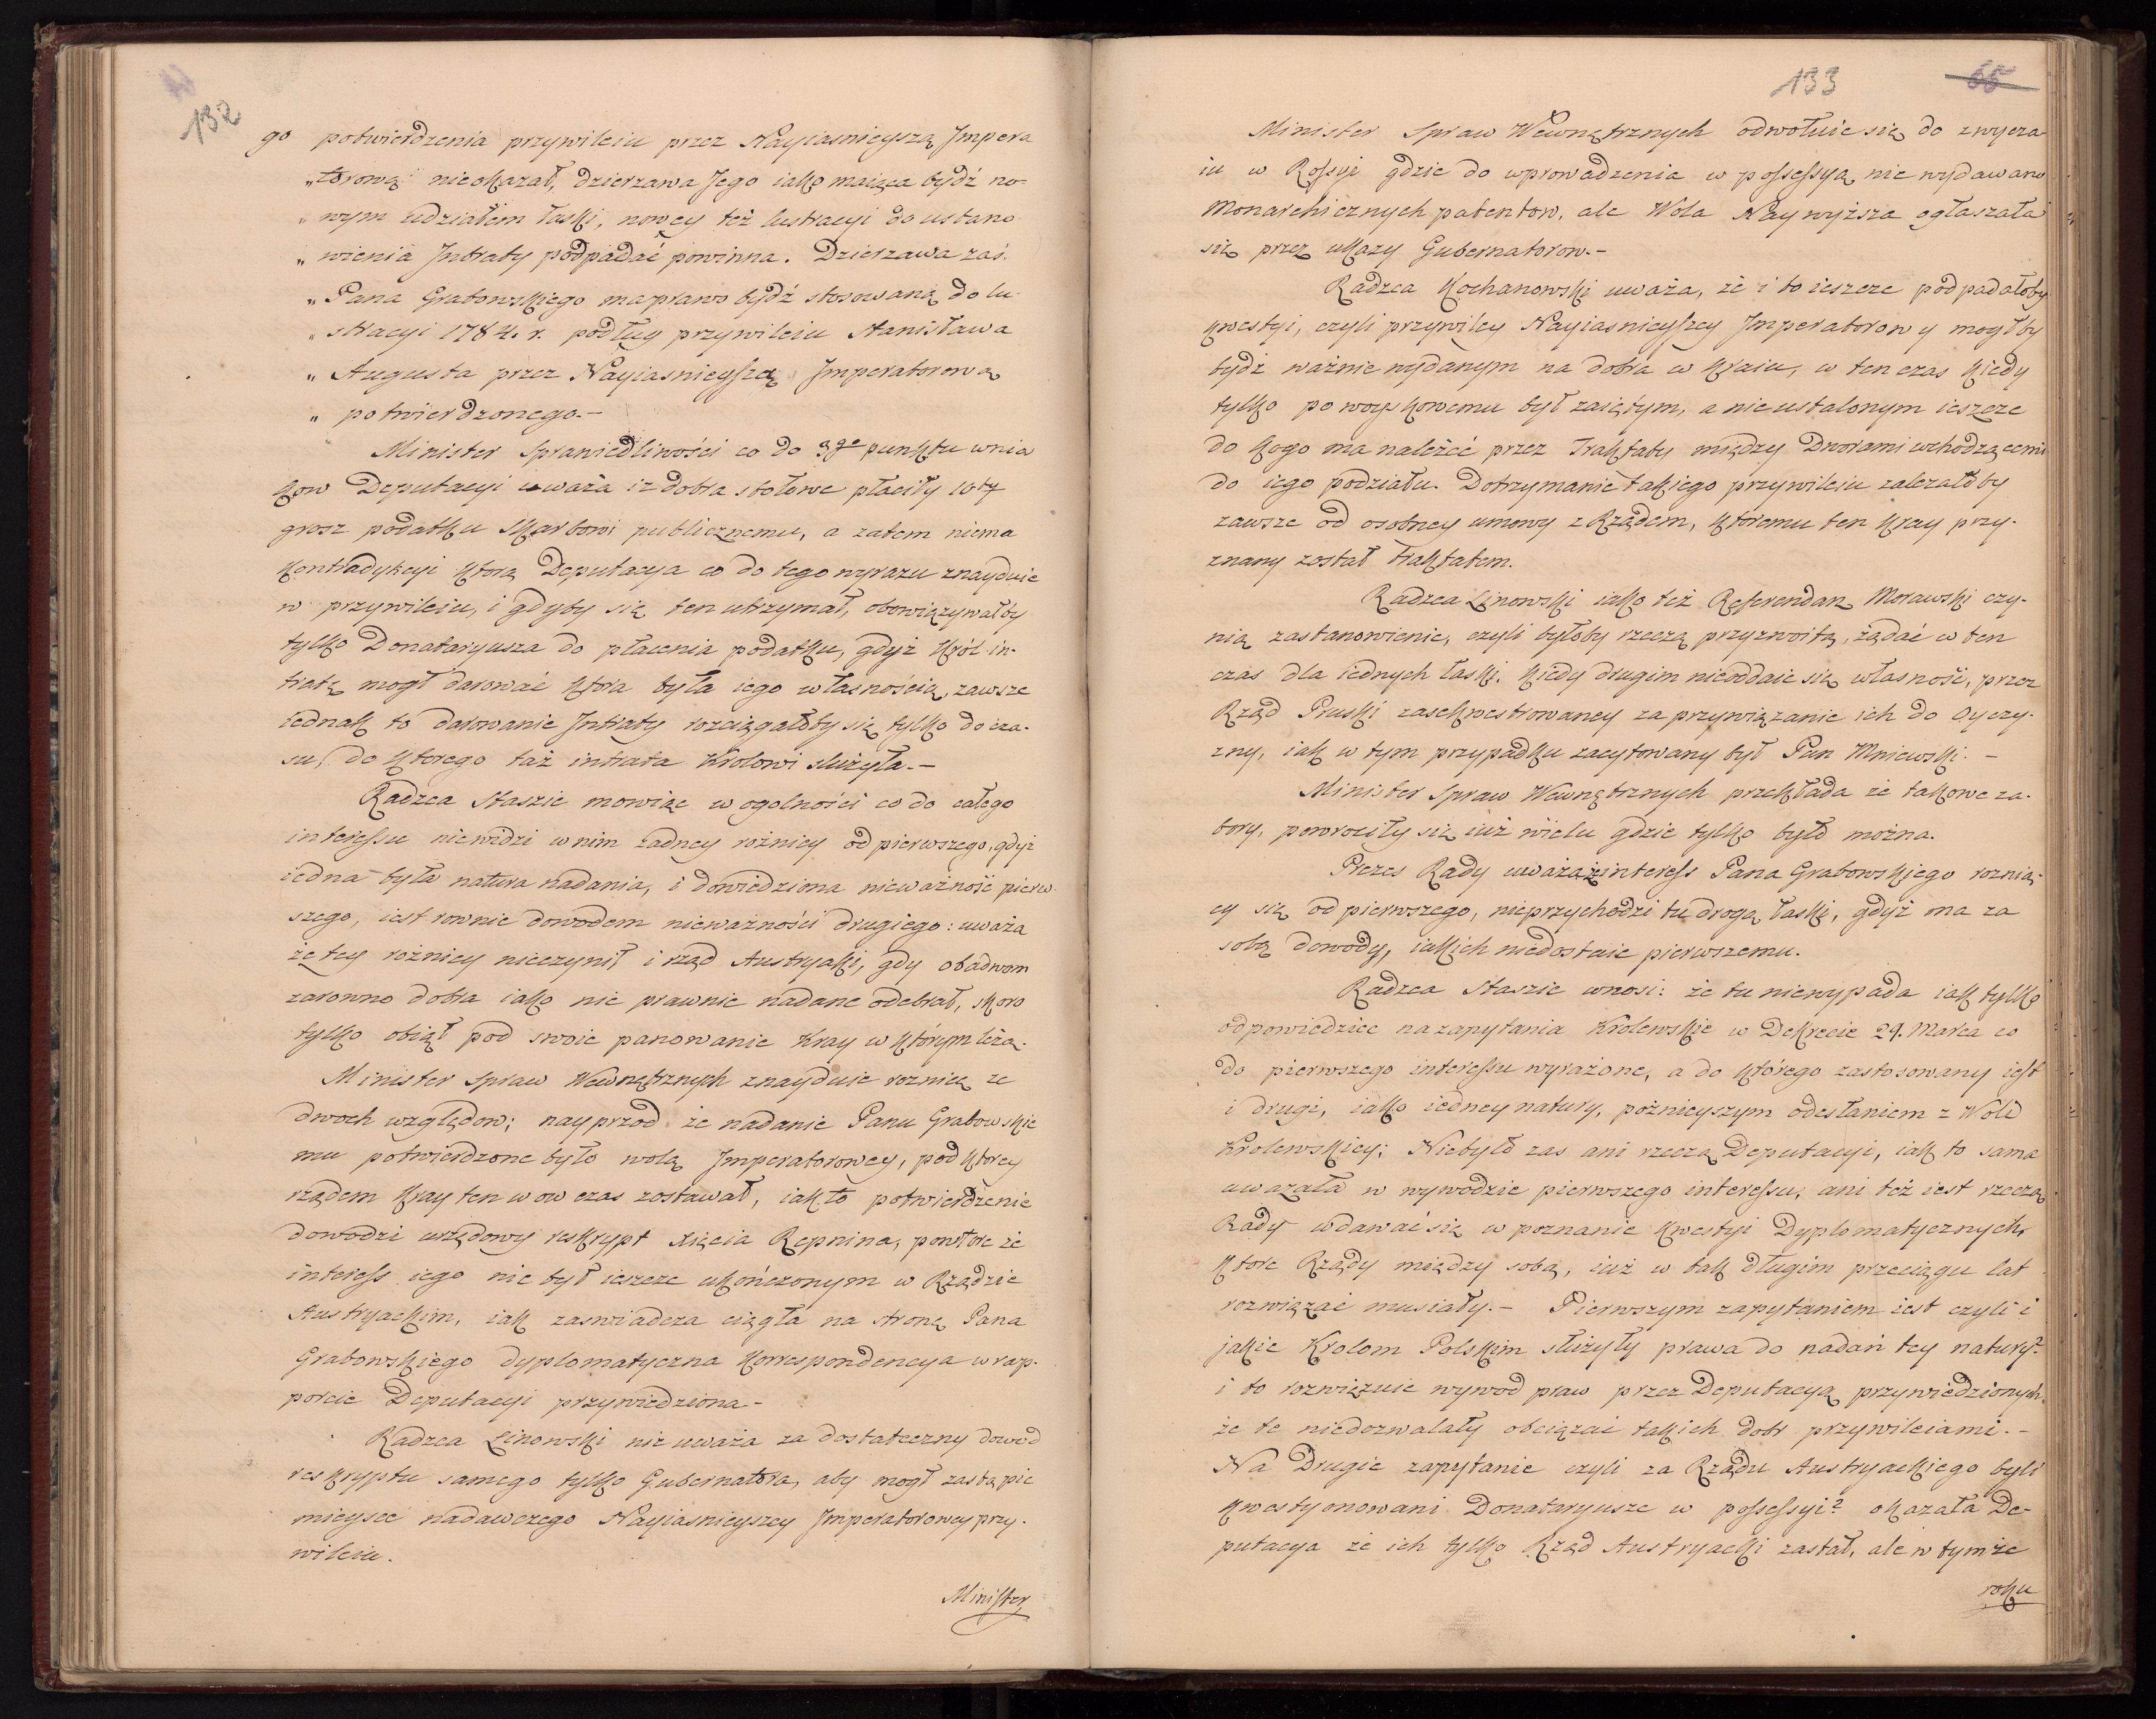 132
go potwierdzenia przywileiu przez Nayiasnieyszą Impera
„torową nieokazał, dzierzawa Jego iako maiąca bydź no-
„ wym udziałem łaski, nowey też lustracyi do ustano
„ wienia Intraty podpadać powinna. Dzierzawa zaś
„ Pana Grabowskiego ma prawo bydź stosowaną do lu
„ stracyi 1784. r. podług przywileiu Stanisława
„ Augusta przez Nayiasnieyszą Imperatorową
„ potwierdzonego.-
Minister Sprawiedliwości co do 3go punktu wnios
kow Deputacyi uważa iż dobra stołowe płaciły 10ty
grosz podatku Skarbowi publicznemu, a zatem niema
kontradykcyi ktorą Deputacya co do tego wyrazu znayduie
w przywileiu, i gdyby się ten utrzymał, obowiązywałby
tylko Donataryusza do płacenia podatku, gdyż Król in-
tratę mogł darować ktora była iego własnością, zawsze
iednak to darowanie Intraty rozciągałoby się tylko do cza-
su, do ktorego taż intrata Krolowi służyła.-
Radzca Staszic mowiąc w ogolności co do całego
interessu niewidzi w nim żadney rożnicy od pierwszego, gdyż
iedna była natura nadania, i dowiedziona nieważność pierw
szego, iest rownie dowodem nieważności drugiego: uważa
że tey rożnicy nieczynił i rząd Austryaki, gdy obadwom
zarowno dobra iako nie prawnie nadane odebrał, skoro
tylko obiął pod swoie panowanie Kray w którym leżą.
Minister Spraw Wewnętrznych znayduie roznicę ze
dwoch względow; nayprzod że nadanie Panu Grabowskie
mu potwierdzone było wolą Imperatorowey, pod ktorey
rządem Kray ten w ow czas zostawał, iak to potwierdzenie
dowodzi urzędowy reskrypt Xięcia Repnina, powtore że
interess iego nie był ieszcze ukończonym w Rządzie
Austryackim, iak zaswiadcza ciągła na stronę Pana
Grabowskiego dyplomatyczna korrespondencya w rap-
porcie Deputacyi przywiedziona-
Radzca Linowski nie uważa za dostateczny dowod
reskryptu samego tylko Gubernatora, aby mogł zastąpić
mieysce nadawczego Nayiasnieyszey Imperatorowey przy-
wileiu.
Minister
133 65
Minister Spraw Wewnętrznych odwołuie się do zwycza-
iu w Rossyi gdzie do wprowadzenia w possessyą nie wydawano
Monarchicznych patentow, ale Wola Naywyższa ogłaszała
się przez ukazy Gubernatorow.-
Radzca Kochanowski uważa, że i to ieszcze podpadałoby
kwestyi, czyli przywiley Nayiasnieyszey Imperatorowy mogłby
bydź ważnie wydanym na dobra w Kraiu, w ten czas kiedy
tylko po woyskowemu był zaiętym, a nieustalonym ieszcze
do kogo ma należeć przez Traktaty między Dworami wchodzącemi
do iego podziału. Dotrzymanie takiego przywileiu zależałoby
zawsze od osobney umowy z Rządem, ktoremu ten Kray przy-
znany został traktatem.
Radzca Linowski iako też Referendarz Morawski czy-
nią zastanowienie, czyli byłoby rzeczą przyzwoitą, żądać w ten
czas dla iednych łaski, kiedy drugim nieoddaie się własność, przez
Rząd Pruski zasekwestrowaney za przywiązanie ich do Oyczy-
zny, iak w tym przypadku zacytowany był Pan Mniewski.-
Minister Spraw Wewnętrznych przekłada że takowe za-
bory, powrociły się iuż wielu gdzie tylko było można.
Prezes Rady uważa że interess Pana Grabowskiego roznią-
cy się od pierwszego, nieprzychodzi tu drogą łaski, gdyż ma za
sobą dowody, iakich niedostaie pierwszemu.
Radzca Staszic wnosi: że tu niewypada iak tylko
odpowiedziec na zapytania Krolewskie w Dekrecie 29. Marca co
do pierwszego interessu wyrażone, a do którego zastosowany iest
i drugi, iako iedney natury, poźnieyszym odesłaniem z Woli
Krolewskiey; Niebyło zas ani rzeczą Deputacyi, iak to sama
uważała w wywodzie pierwszego interessu, ani też iest rzeczą
Rady wdawać się w poznanie kwestyi Dyplomatycznych,
ktore Rządy między sobą, iuż w tak długim przeciągu lat
rozwiązać musiały.- Pierwszym zapytaniem iest czyli i
jakie Krolom Polskim służyły prawa do nadań tey natury?
i to rozwiązuie wywod praw przez Deputacyą przywiedzionych,
że te niedozwalały obciązać takich dobr przywileiami.-
Na Drugie zapytanie czyli za Rządu Austryackiego byli
kwestyonowani Donataryusze w possessyi? okazała De-
putacya że ich tylko Rząd Austryacki zastał, ale w tymże
roku